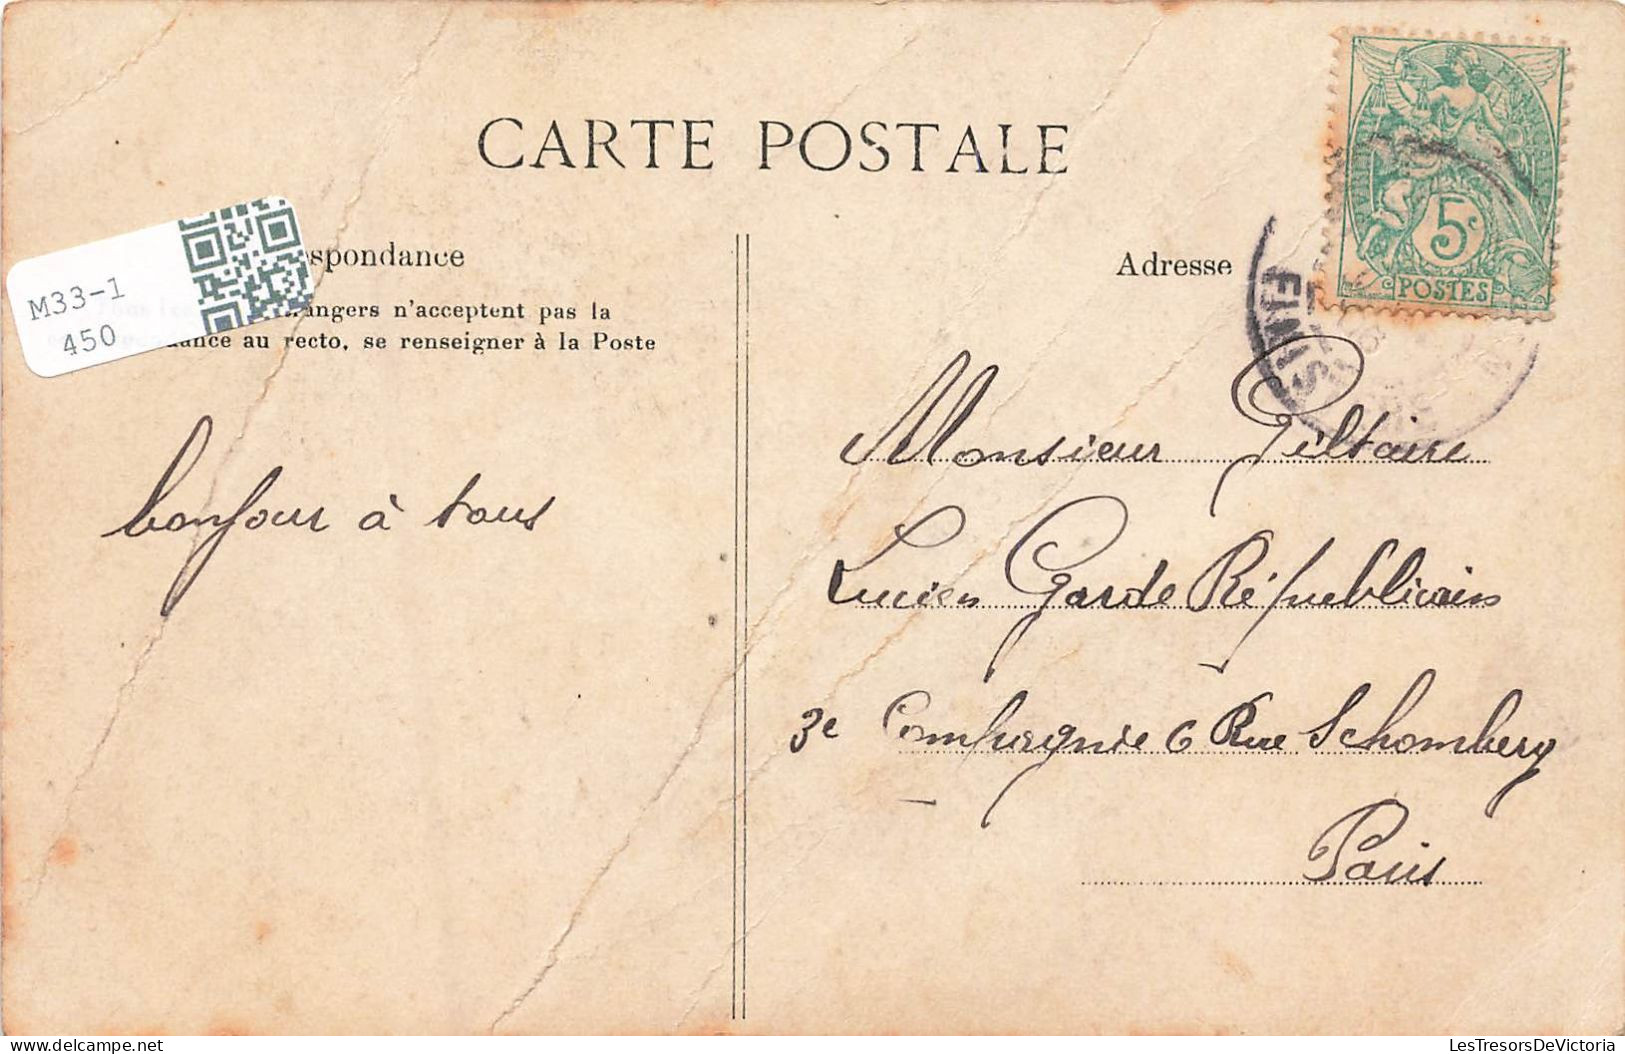 CARTE POSTALE
spondance
angers n'acceptent pas la
dance au recto, se renseigner à la Poste
M33-1
450
Adresse
5c
POSTES
FINIST
bonjour à tous
Monsieur Giltaire
Lucien Garde Républicain
3e Compagnie 6 Rue Schomberg
Paris
delcampe.net
LesTresorsDeVictoria